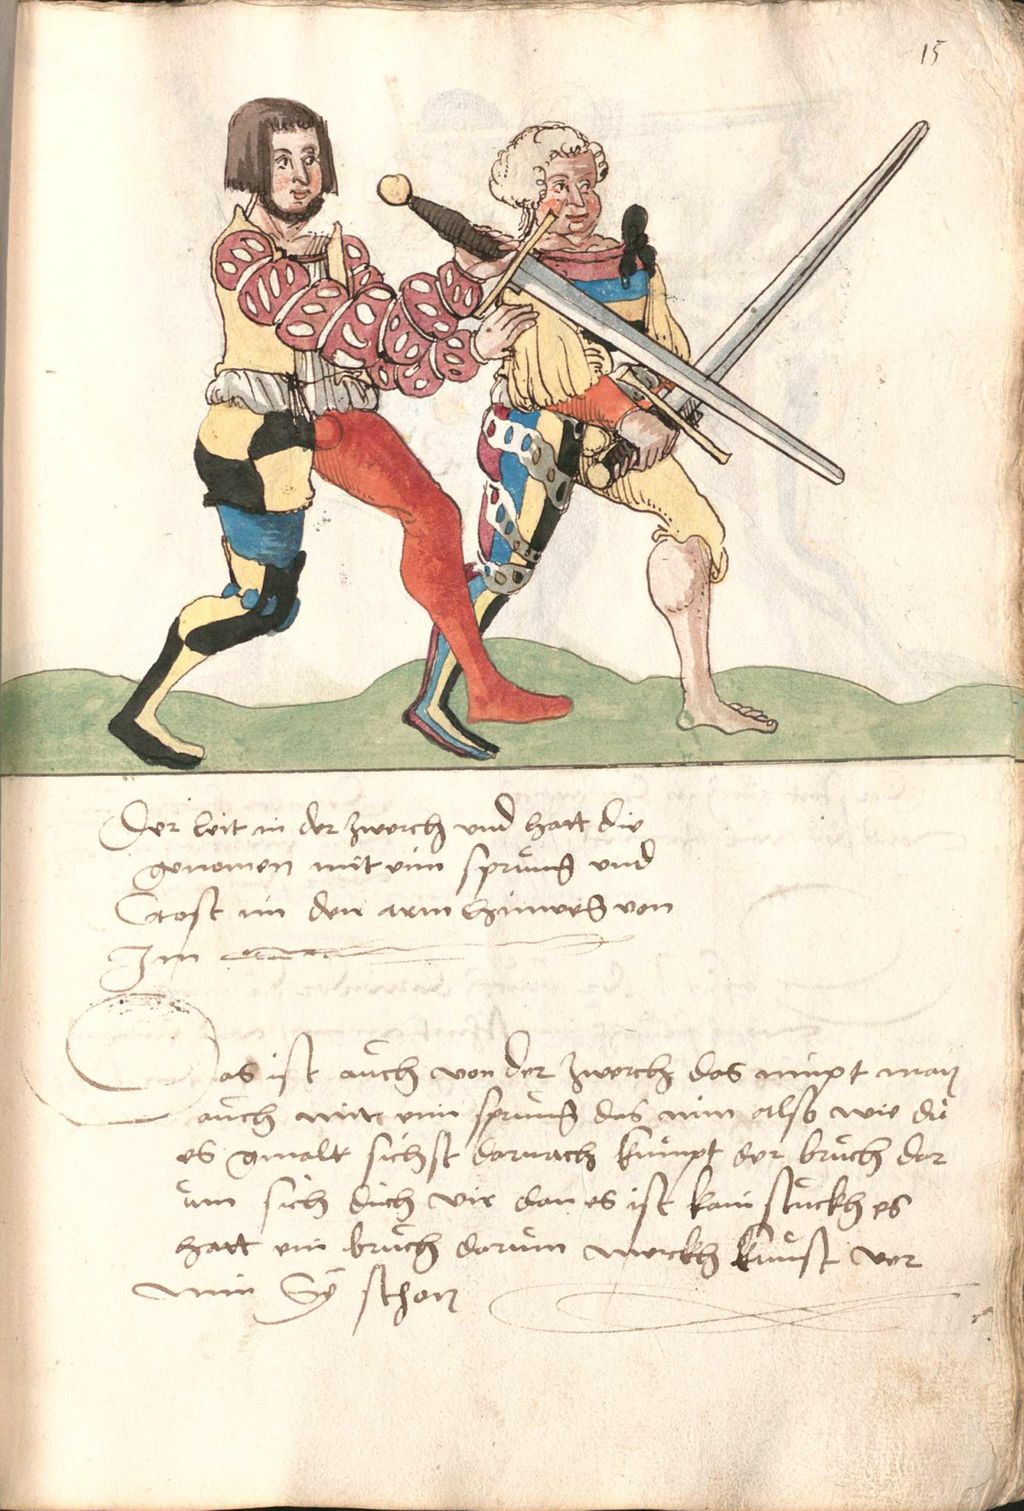 15
Der leit in der zwerch und hatt die
genomen mit eim sprüng und
Stost im den arm hinweg von
Im
Das ist aüch von der zwerch das nimpt man
aüch mitt eim sprüng das nim also wie dü
es gmalt sichst darnach kümpt der brüch dar
üm sich dich vir dan es ist kain stückh es
hatt ein brüch darüm merckh künst ver
nim sÿ schon